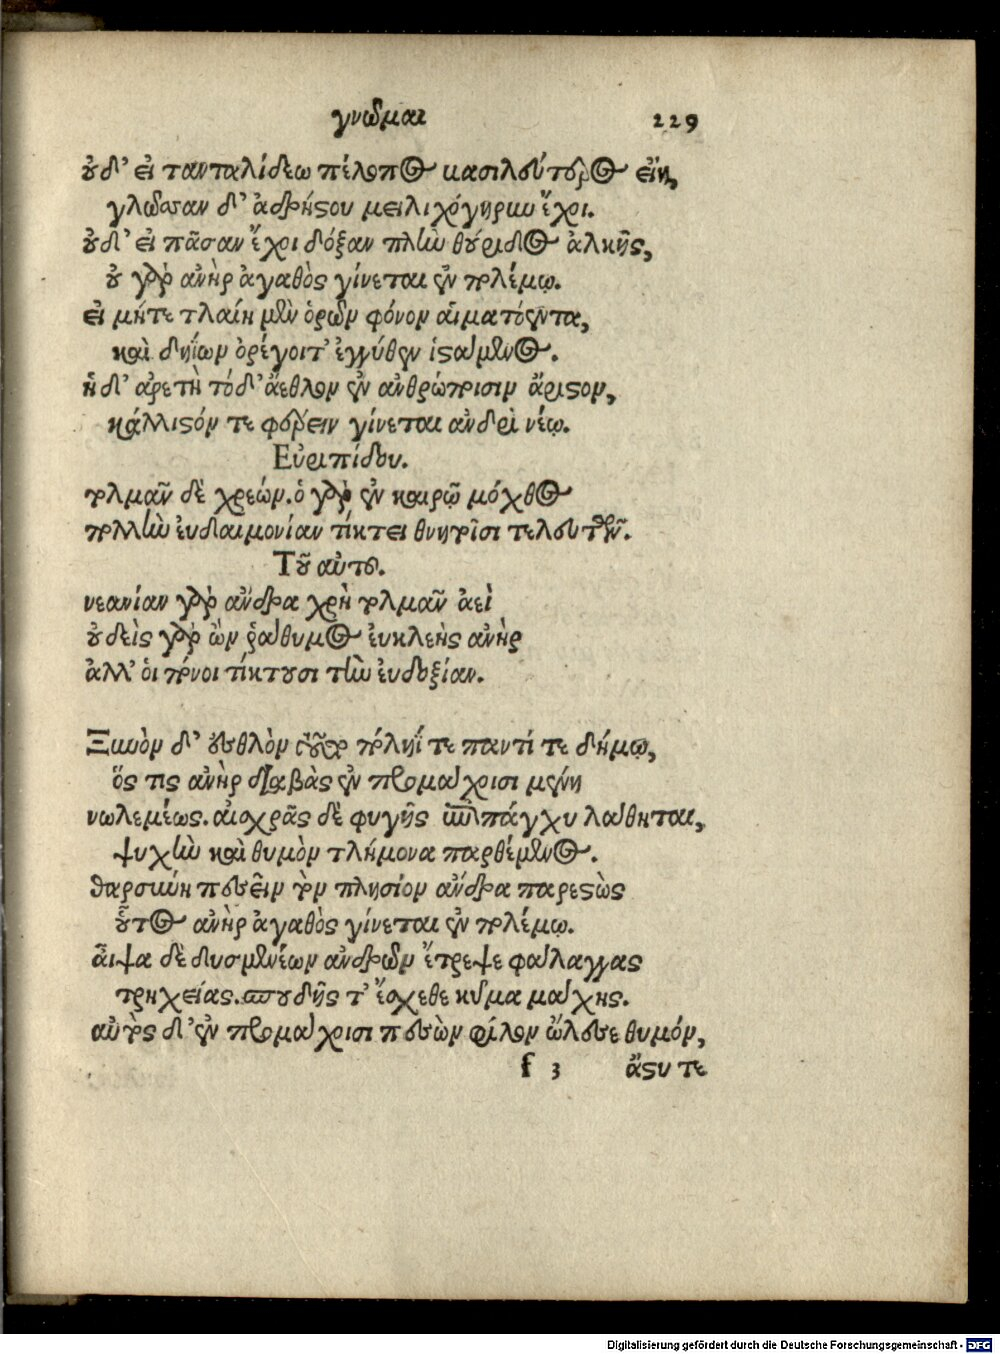 γνῶμαι 229
οὐδ' εἰ τανταλίδεω πέλοπος κασιλούτορος εἴη,
γλῶσσαν δ' ἀδρήστου μειλιχόγηρυν ἔχοι.
οὐδ' εἰ πᾶσαν ἔχοι δόξαν πλὴν θούριδος ἀλκῆς,
οὐ γὰρ ἀνὴρ ἀγαθὸς γίνεται ἐν πολέμῳ.
εἰ μήτε τλαίη μὲν ὁρῶν φόνον αἱματόεντα,
καὶ δηΐων ὀρέγοιτ' ἐγγύθεν ἱστάμενος.
ἡ δ' ἀρετὴ τόδ' ἄεθλον ἐν ἀνθρώποισιν ἄριστον,
κάλλιστόν τε φέρειν γίνεται ἀνδρὶ νέῳ.
Εὐριπίδου.
τολμᾶν δὲ χρεών. ὁ γὰρ ἐν καιρῷ μόχθος
πολλὴν εὐδαιμονίαν τίκτει θνητοῖσι τελευτῶν.
Τοῦ αὐτοῦ.
νεανίαν γὰρ ἄνδρα χρὴ τολμᾶν ἀεὶ
οὐδεὶς γὰρ ὢν ῥάθυμος εὐκλεὴς ἀνὴρ
ἀλλ' οἱ πόνοι τίκτουσι τὴν εὐδοξίαν.
Ξυνὸν δ' ἐσθλὸν τοῦτο πόληΐ τε παντί τε δήμῳ,
ὅς τις ἀνὴρ διαβὰς ἐν προμάχοισι μένῃ
νωλεμέως. αἰσχρᾶς δὲ φυγῆς ἐπιπάγχυ λάθηται,
ψυχὴν καὶ θυμὸν τλήμονα παρθέμενος.
θαρσύνῃ πεσεῖν τὸν πλησίον ἄνδρα παρεστὼς
οὗτος ἀνὴρ ἀγαθὸς γίνεται ἐν πολέμῳ.
αἶψα δὲ δυσμενέων ἀνδρῶν ἔτρεψε φάλαγγας
τρηχείας. σπουδῆς τ' ἔσχεθε κῦμα μάχης.
αὐτὸς δ' ἐν προμάχοισι πεσὼν φίλον ὤλεσε θυμόν,
f 3 ἄστυ τε
Digitalisierung gefördert durch die Deutsche Forschungsgemeinschaft - DFG